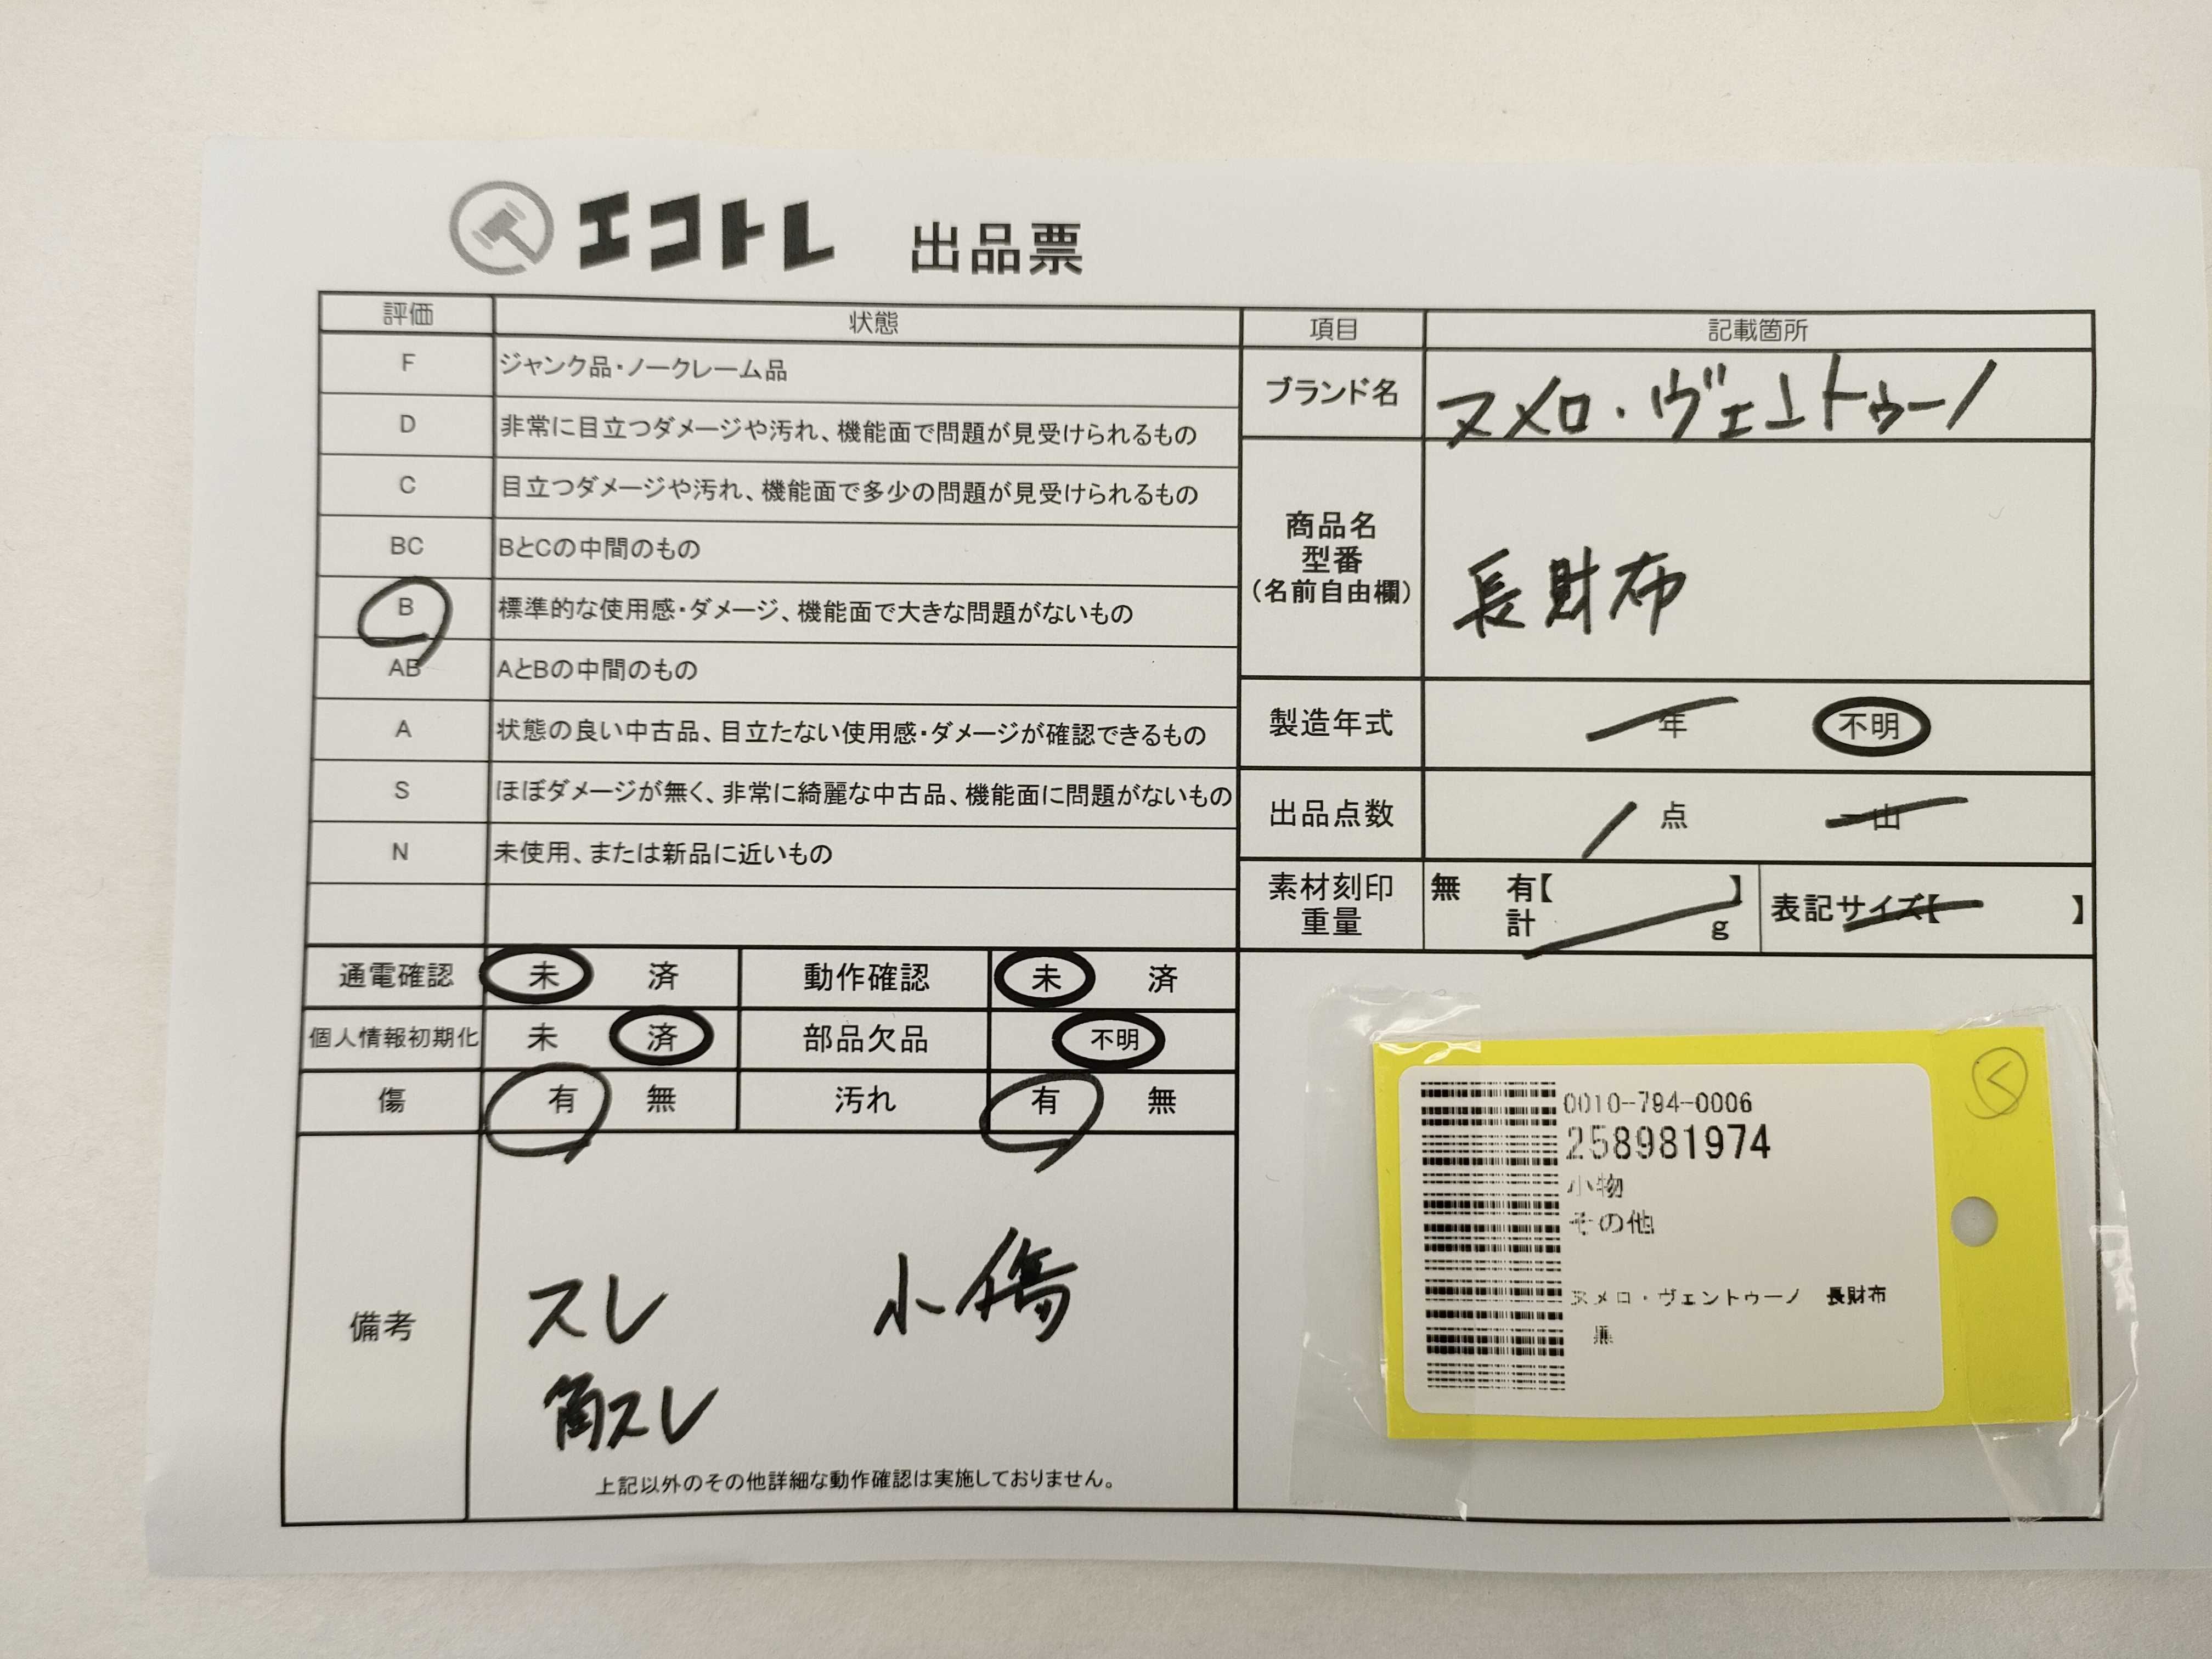 エコトレ 出品票
評価 状態
F ジャンク品・ノークレーム品
D 非常に目立つダメージや汚れ、機能面で問題が見受けられるもの
C 目立つダメージや汚れ、機能面で多少の問題が見受けられるもの
BC BとCの中間のもの
B 標準的な使用感・ダメージ、機能面で大きな問題がないもの
AB AとBの中間のもの
A 状態の良い中古品、目立たない使用感・ダメージが確認できるもの
S ほぼダメージが無く、非常に綺麗な中古品、機能面に問題がないもの
N 未使用、または新品に近いもの
通電確認 未 済 動作確認 未 済
個人情報初期化 未 済 部品欠品 不明
傷 有 無 汚れ 有 無
備考
スレ 小傷
角スレ
上記以外のその他詳細な動作確認は実施しておりません。
項目 記載箇所
ブランド名 ヌメロ・ヴェントゥーノ
商品名
型番
(名前自由欄)
長財布
製造年式 年 不明
出品点数 1 点 一山
素材刻印 無 有【 】
重量 計 g
表記サイズ【 】
0010-794-0006
258981974
小物
その他
ヌメロ・ヴェントゥーノ 長財布
黒